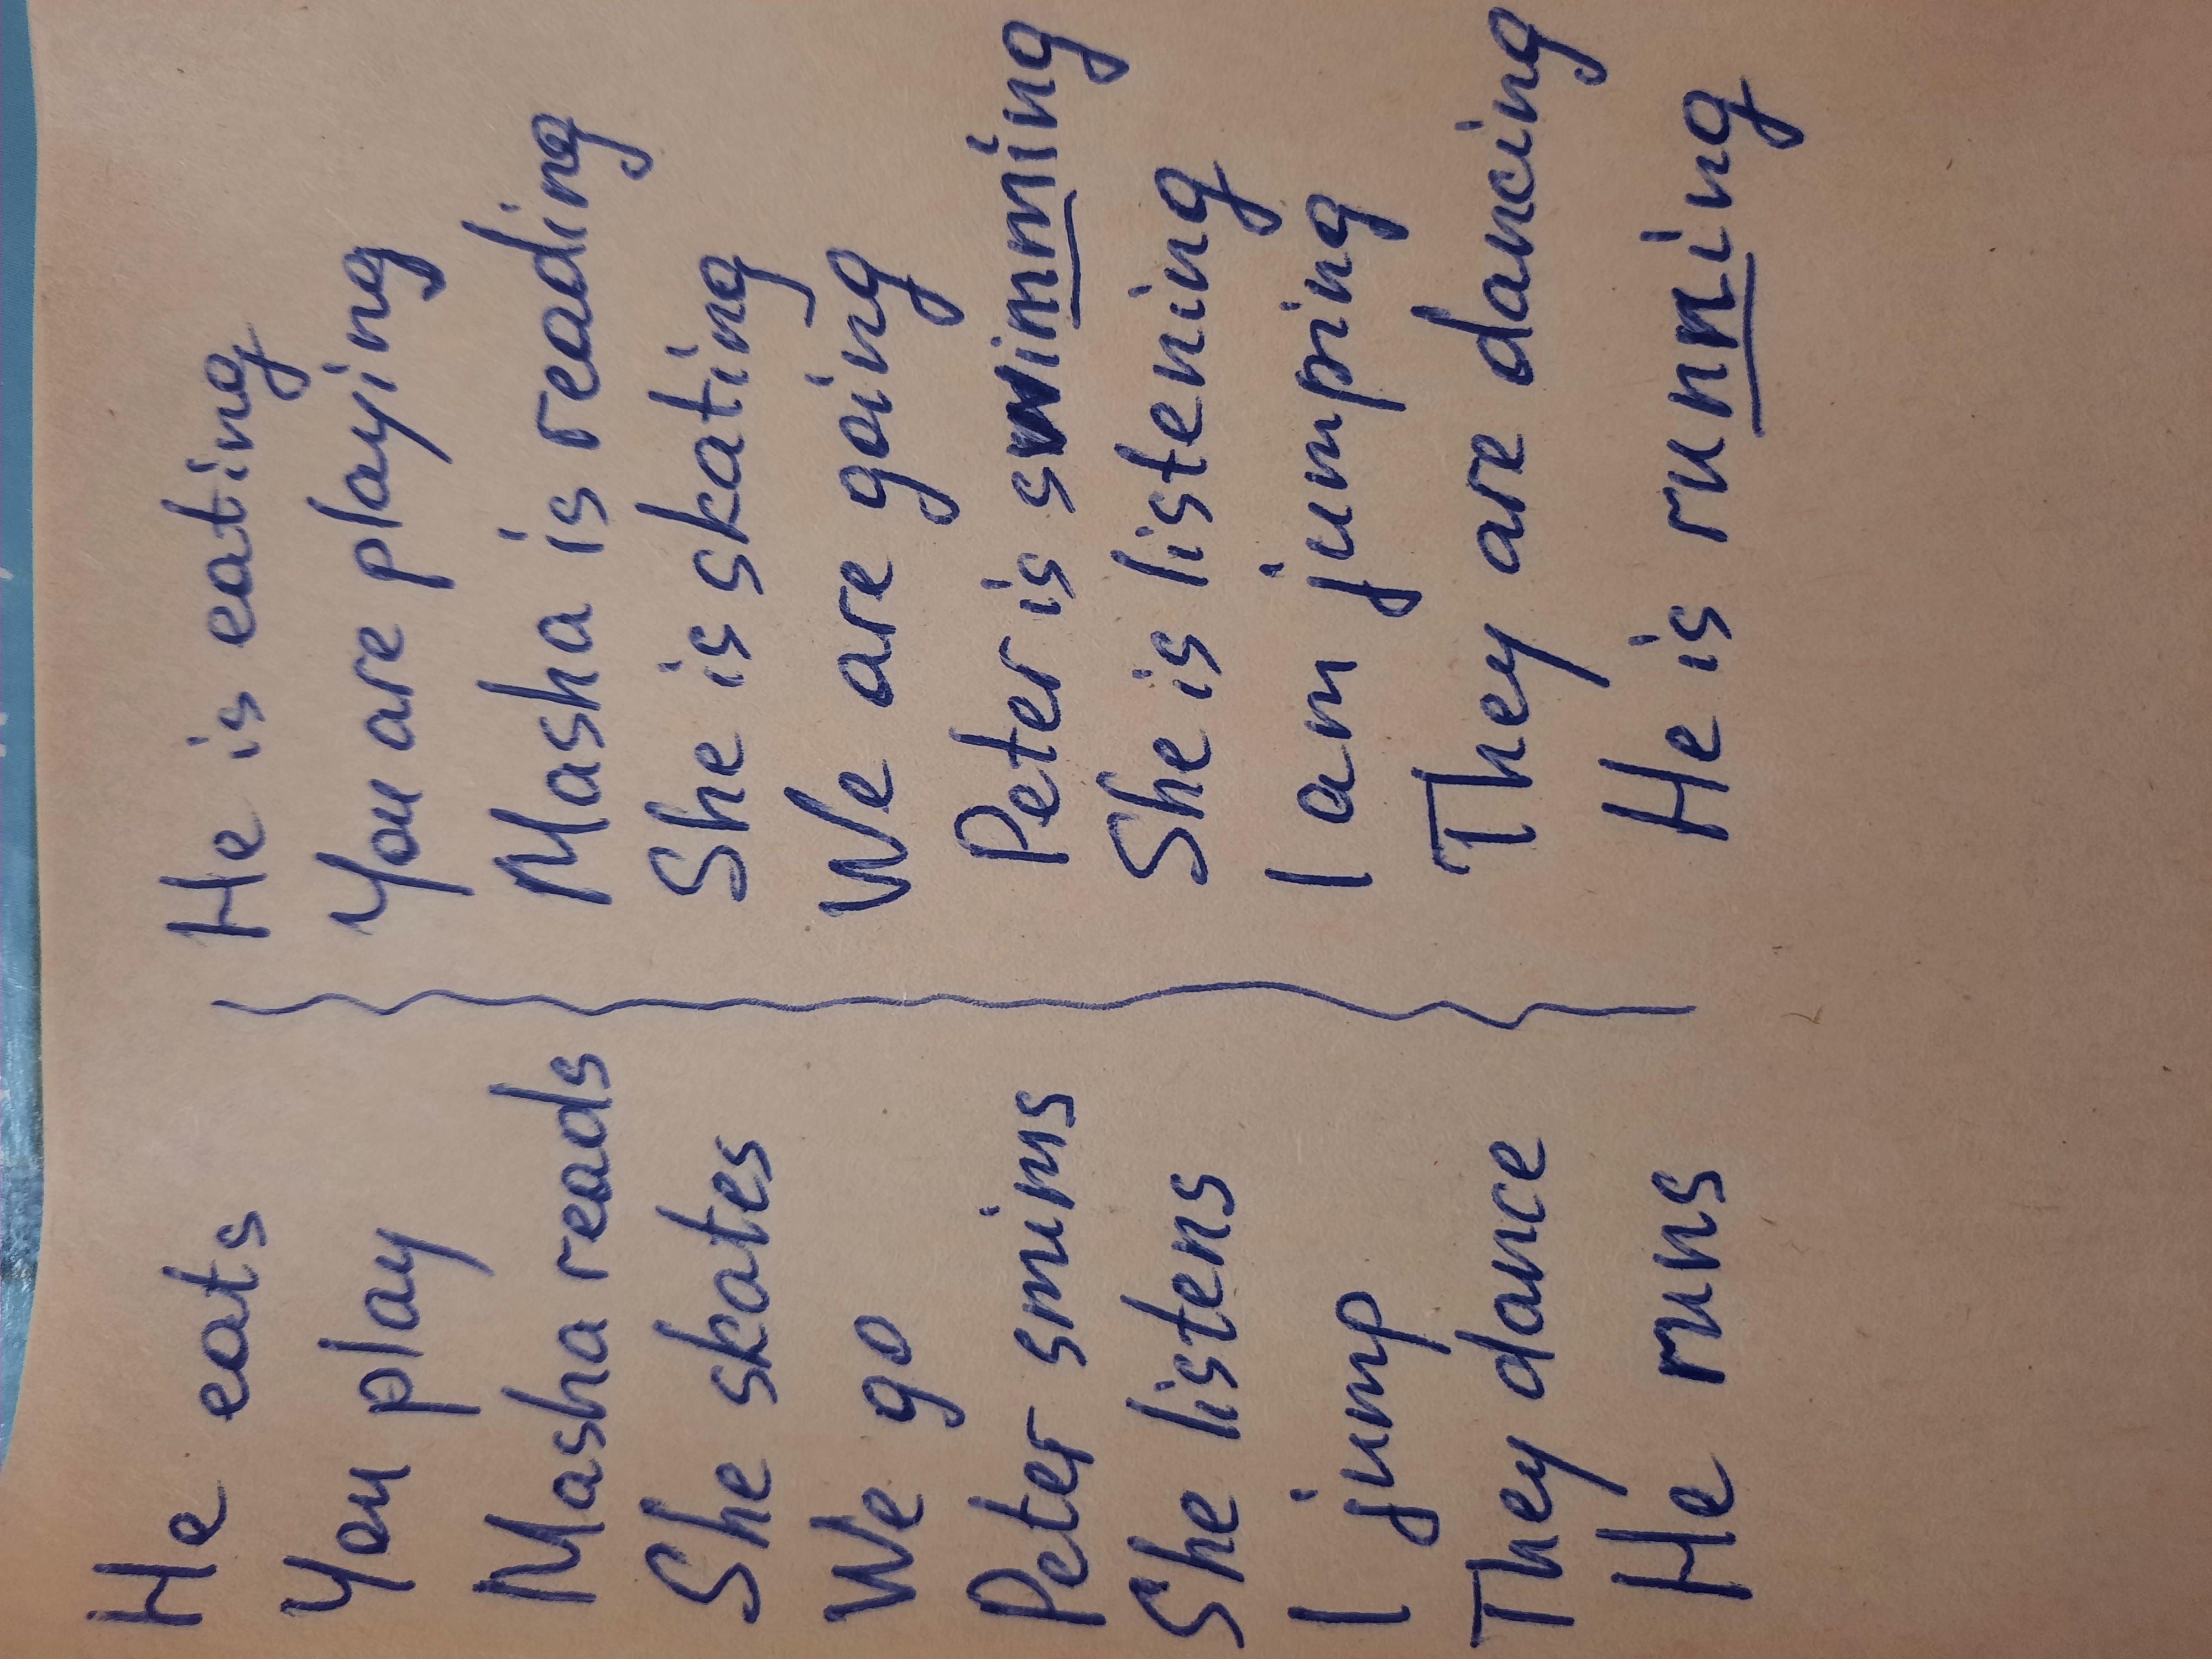 He eats He is eating
You play You are playing
Masha reads Masha is reading
She skates She is skating
We go We are going
Peter smims Peter is swimming
She listens She is listening
I jump I am jumping
They dance They are dancing
He runs He is running